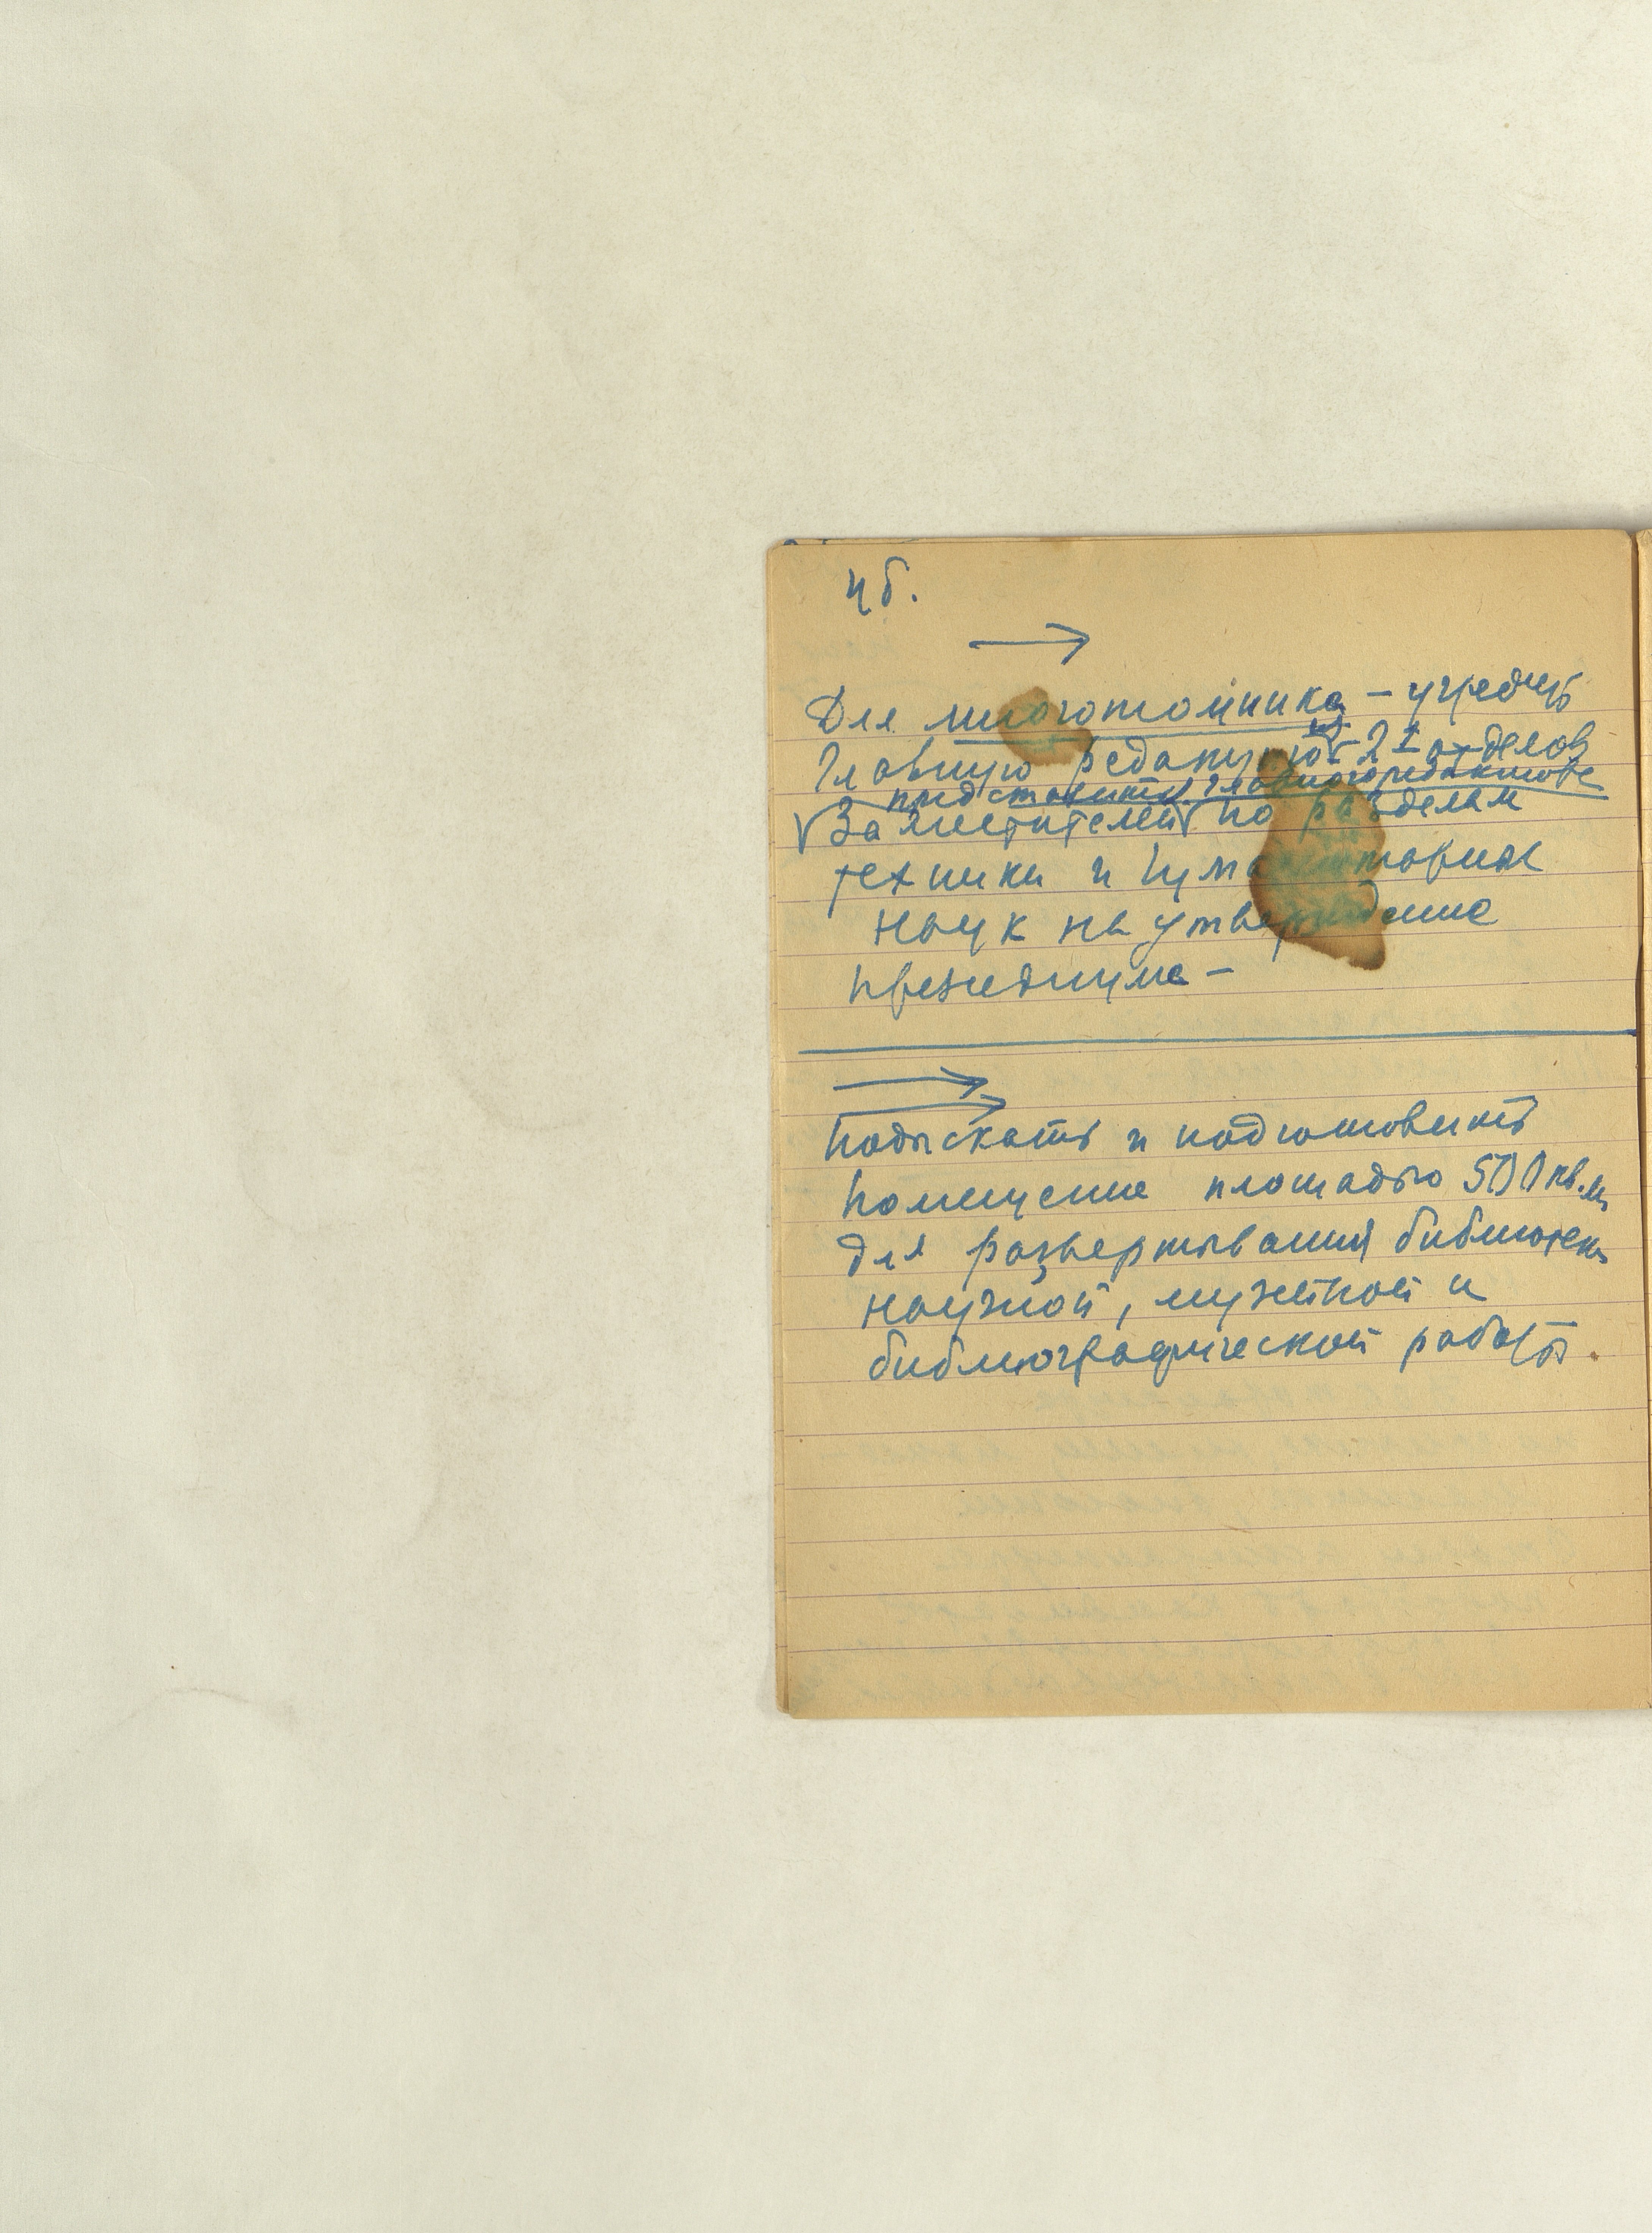 4б.
Для многотомника – учредить
Главную редакцию из 2х отделов
представить главного редактора
Заместителей по разделам
техники и гуманитарных
наук на утверждение
президиума –
Подыскать и подготовить
помещение площадью 500 кв.м,
для развертывания библиотеки
научной, музейной и
библиографической работы.